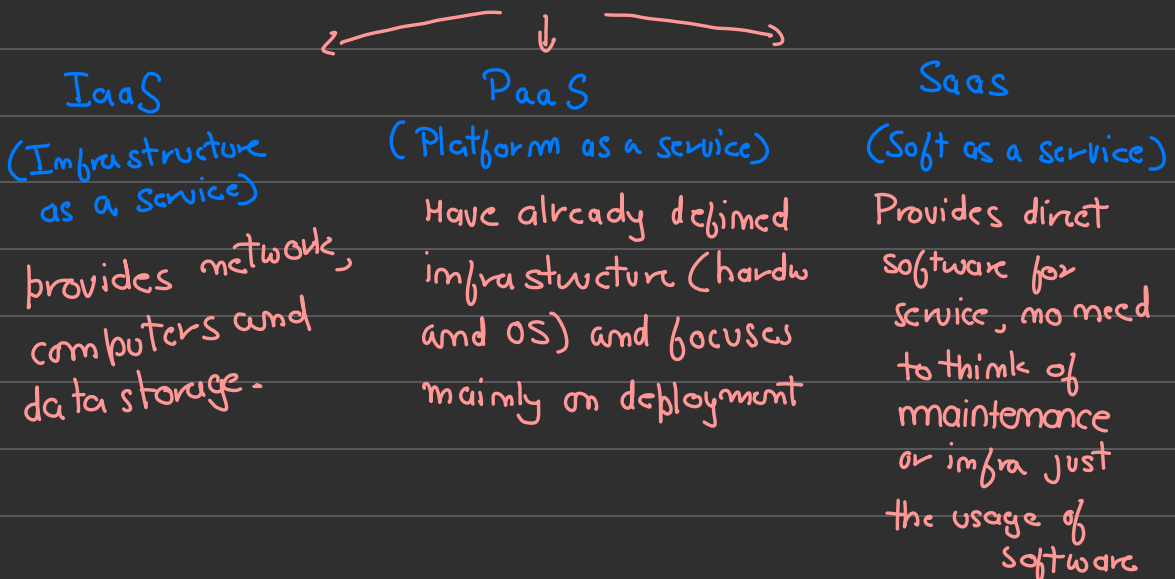 IaaS
(Infrastructure
as a service)
provides network,
computers and
data storage.
PaaS
(Platform as a service)
Have already defined
infrastructure (hardw
and OS) and focuses
mainly on deployment
SaaS
(Soft as a service)
Provides direct
software for
service, no need
to think of
maintenance
or infra just
the usage of
software